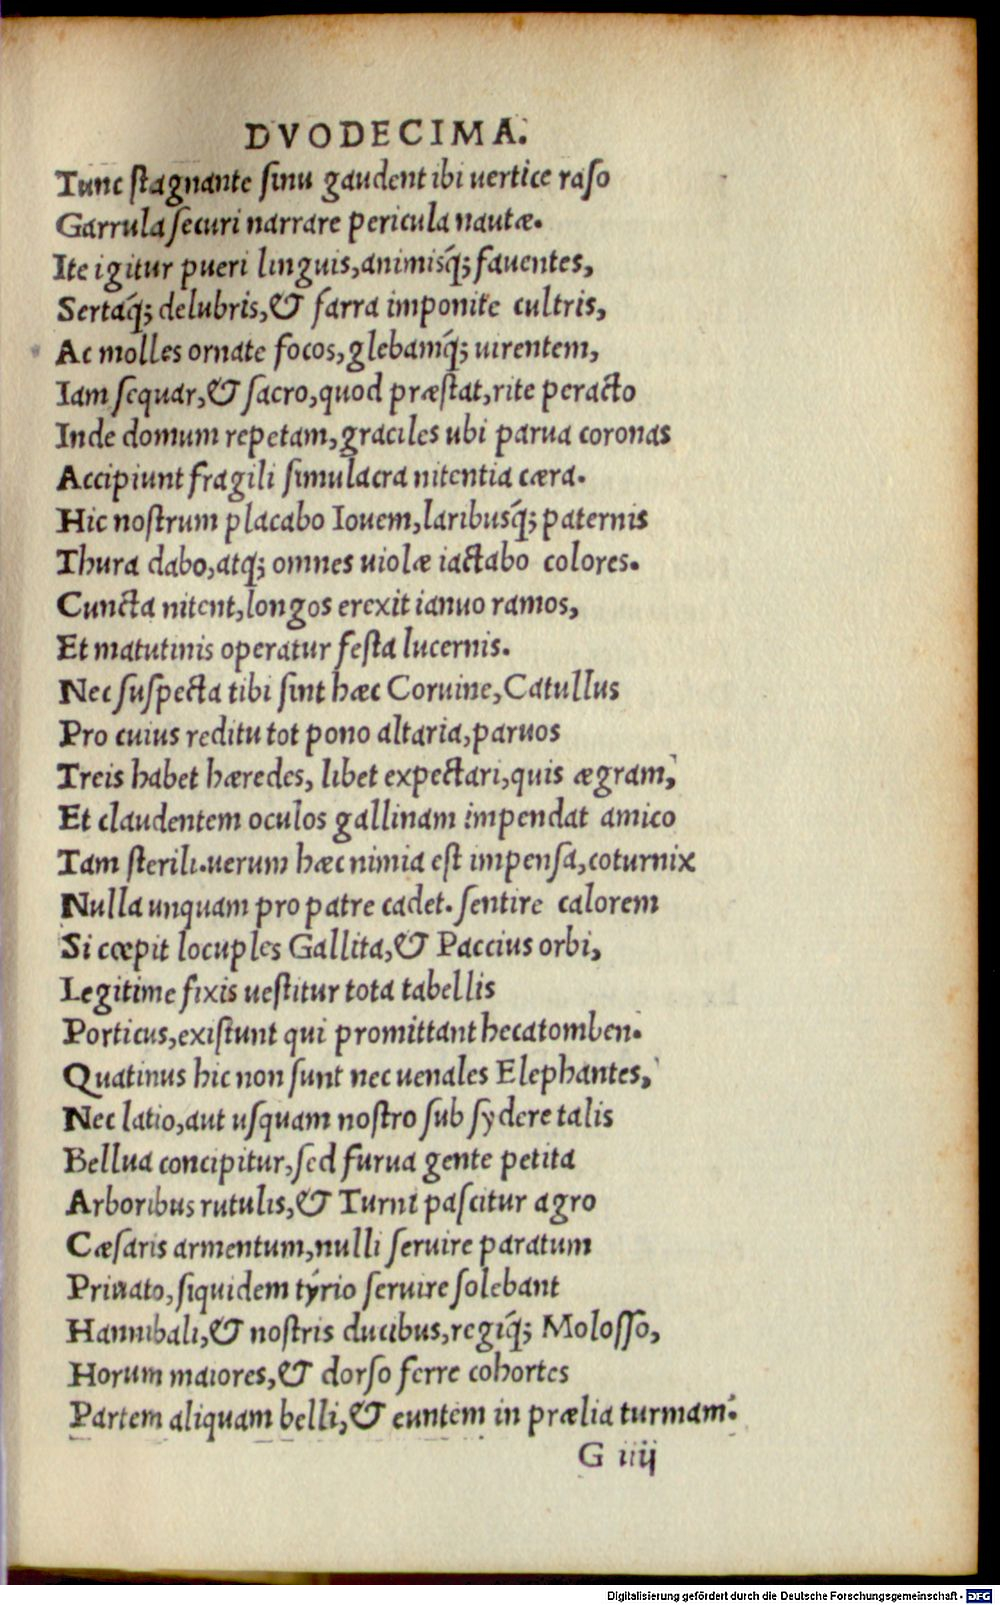 DVODECIMA.
Tunc stagnante sinu gaudent ibi uertice raso
Garrula securi narrare pericula nautæ.
Ite igitur pueri linguis, animisq́; fauentes,
Sertaq́; delubris, & farra imponite cultris,
Ac molles ornate focos, glebamq́; uirentem,
Iam sequar, & sacro, quod præstat, rite peracto
Inde domum repetam, graciles ubi parua coronas
Accipiunt fragili simulacra nitentia cæra.
Hic nostrum placabo Iouem, laribusq́; paternis
Thura dabo, atq; omnes uiolæ iactabo colores.
Cuncta nitent, longos erexit ianuo ramos,
Et matutinis operatur festa lucernis.
Nec suspecta tibi sint hæc Coruine, Catullus
Pro cuius reditu tot pono altaria, paruos
Treis habet hæredes, libet expectari, quis ægram,
Et claudentem oculos gallinam impendat amico
Tam sterili. uerum hæc nimia est impensa, coturnix
Nulla unquam pro patre cadet. sentire calorem
Si cœpit locuples Gallita, & Paccius orbi,
Legitime fixis uestitur tota tabellis
Porticus, existunt qui promittant hecatomben.
Quatinus hic non sunt nec uenales Elephantes,
Nec latio, aut usquam nostro sub sydere talis
Bellua concipitur, sed furua gente petita
Arboribus rutulis, & Turni pascitur agro
Cæsaris armentum, nulli seruire paratum
Priuato, siquidem tyrio seruire solebant
Hannibali, & nostris ducibus, regiq́; Molosso,
Horum maiores, & dorso ferre cohortes
Partem aliquam belli, & euntem in prælia turmam.
G iiij
Digitalisierung gefördert durch die Deutsche Forschungsgemeinschaft - DFG